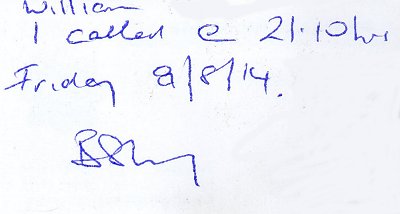 William
I called @ 21.10hrs
Friday 8/8/14.